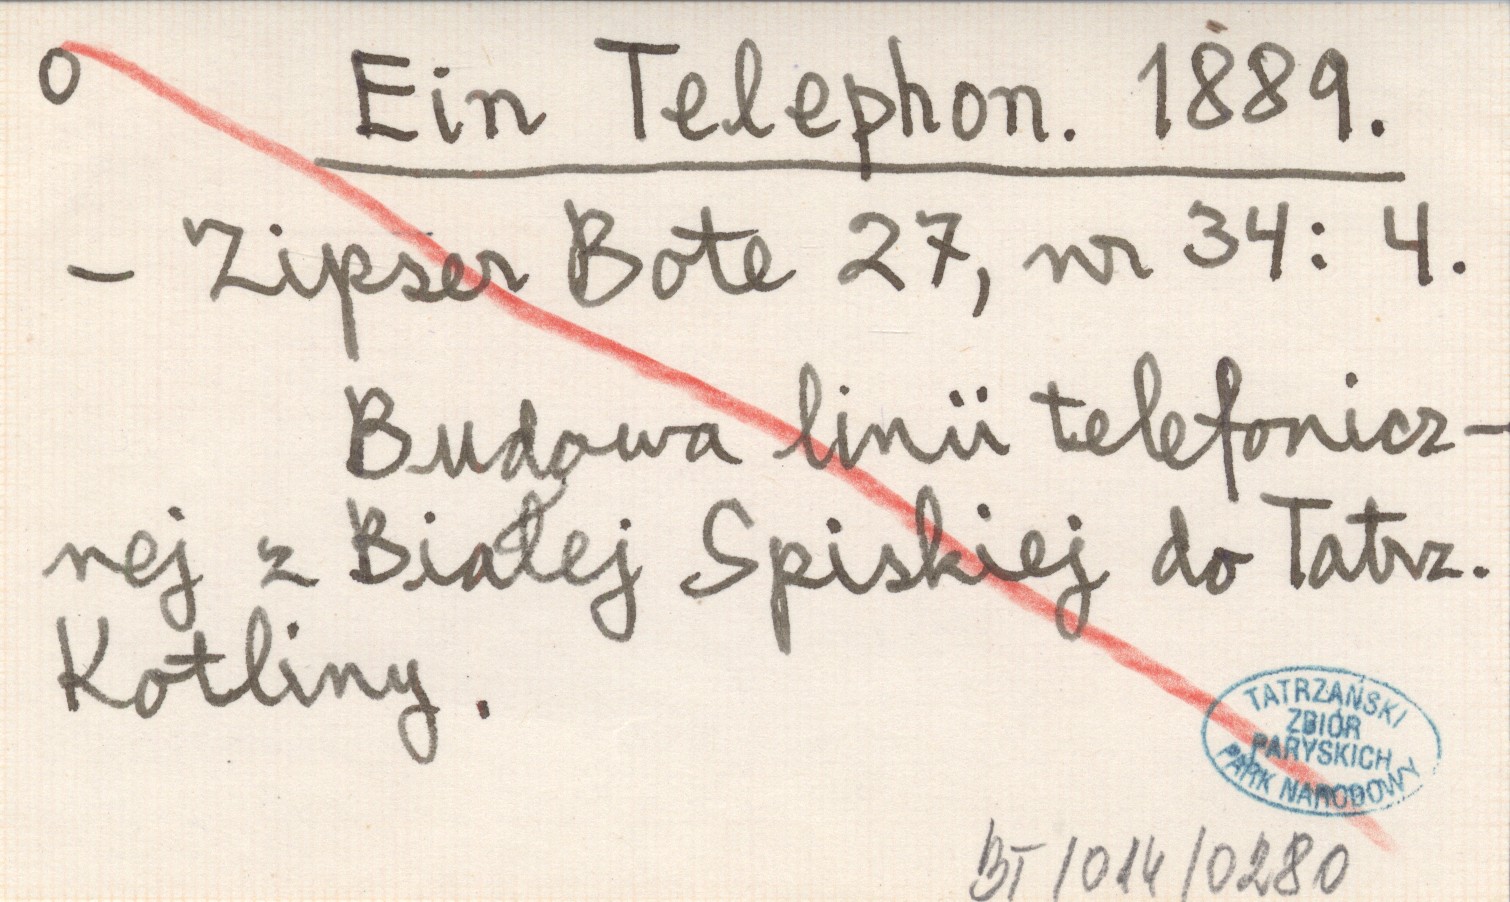 o Ein Telephon. 1889.
- Zipser Bote 27, nr 34: 4.
Budowa linii telefonicz-
nej z Białej Spiskiej do Tatrz.
Kotliny.
TATRZAŃSKI
ZBIÓR
PARYSKICH
PARK NARODOWY
BT/014/0280